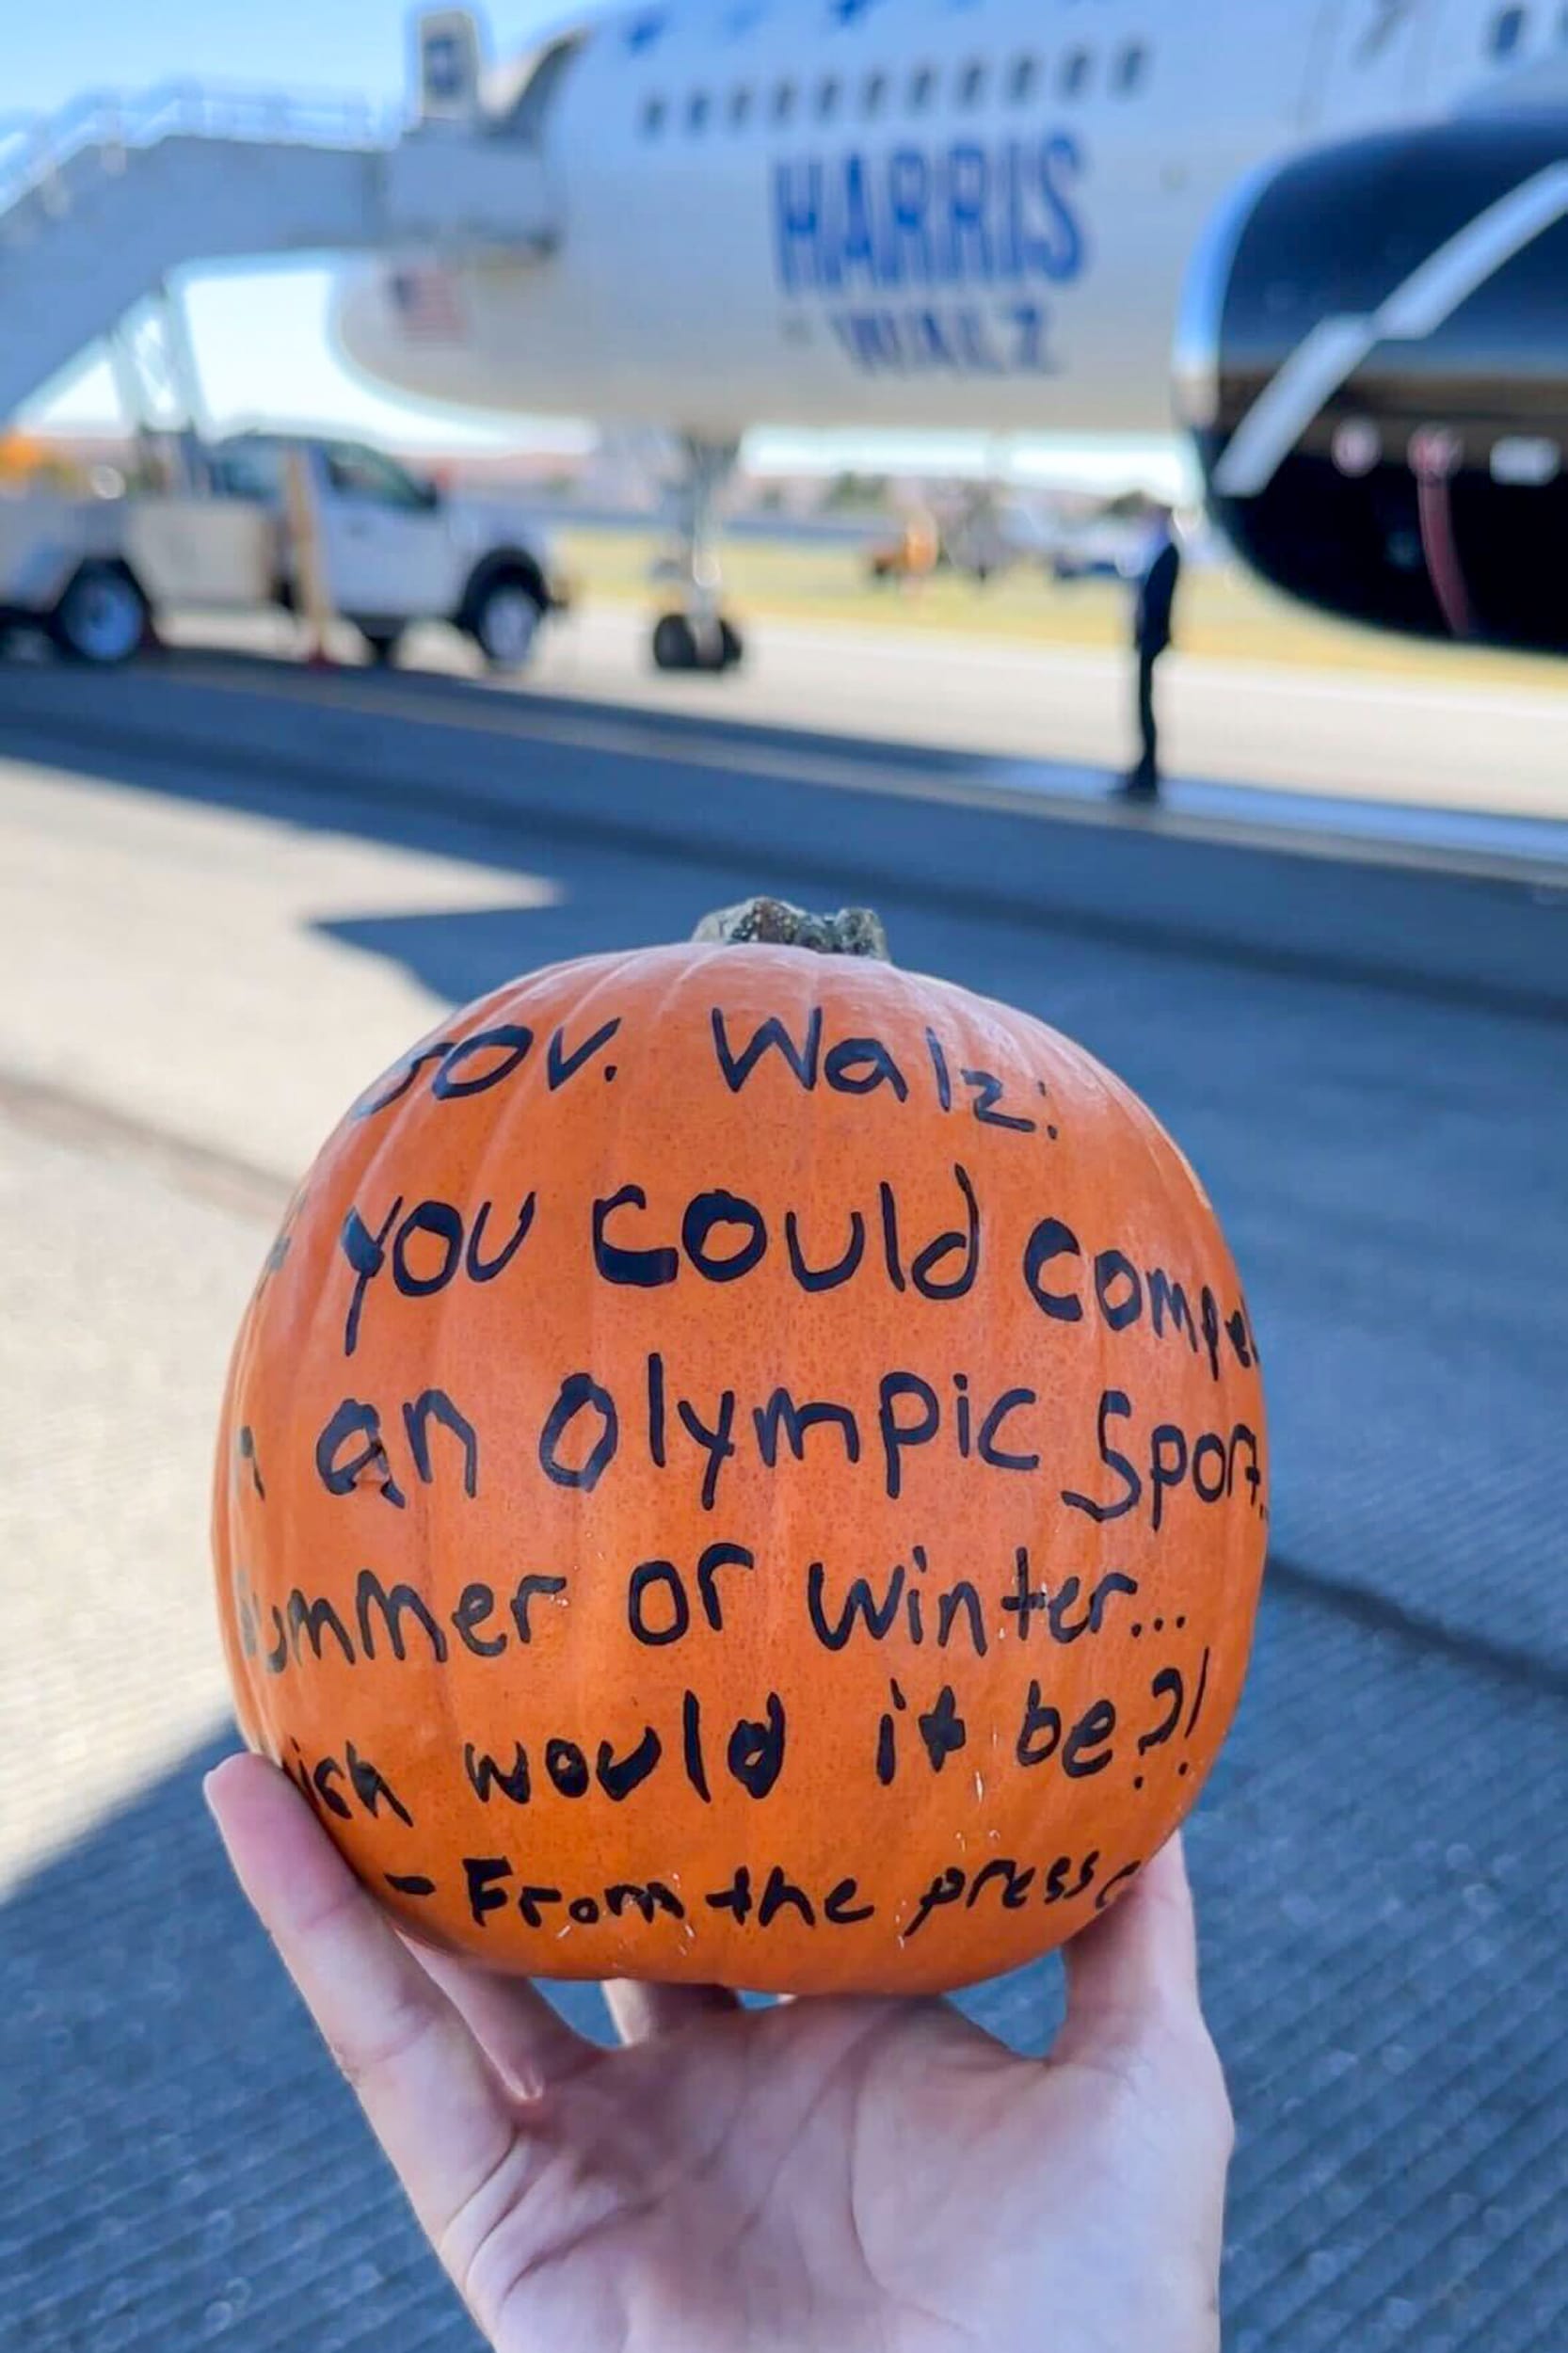 HARRIS
WALZ
ov. Walz:
you could compe
an Olympic Sport..
ummer or winter...
ich would it be?!
- From the press c